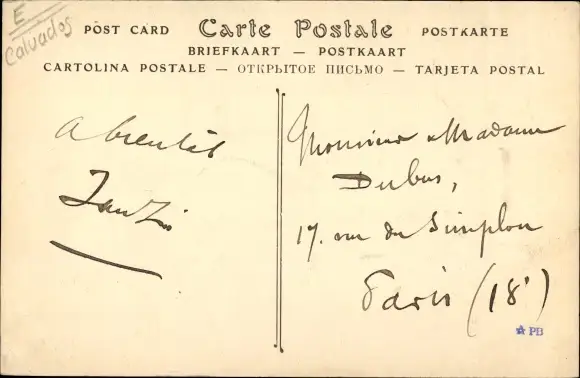 E
Calvados
POST CARD Carte Postale POSTKARTE
BRIEFKAART — POSTKAART
CARTOLINA POSTALE — ОТКРЫТОЕ ПИСЬМО — TARJETA POSTAL
A bientôt
Monsieur & Madame
Dubus,
17. rue du Simplon
Paris (18e)
PB